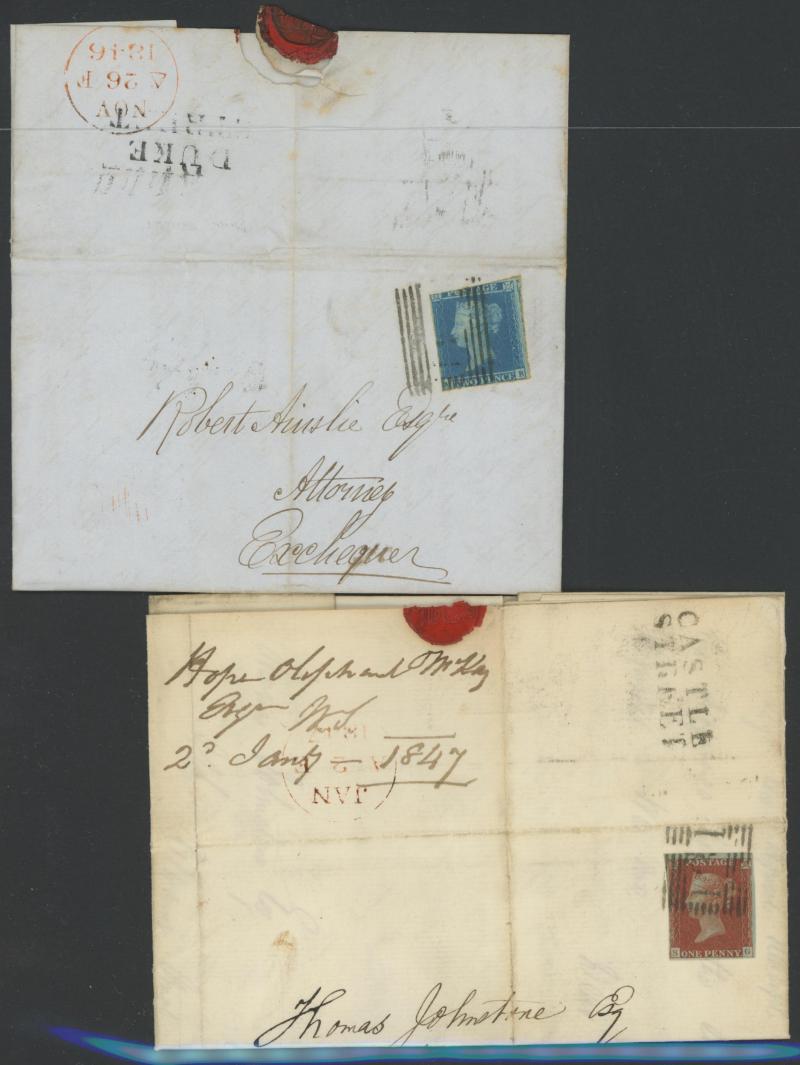 1846
A 26 F
NOV
DUKE
STREET
POSTAGE
TWO PENCE
R
Robert Ainslie Esqre
Attorney
Exchequer
CASTLE
STREET
Hope Oliphant McKay
Esqr WS
2d Jany — 1847
A 2
JAN
POSTAGE
S ONE PENNY G
Thomas Johnstone Esq